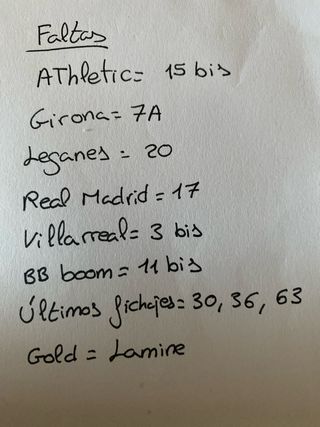 Faltas
AThletic= 15 bis
Girona= 7A
Leganes = 20
Real Madrid = 17
Villarreal= 3 bis
BB boom = 11 bis
Últimos fichajes= 30, 36, 63
Gold = Lamine